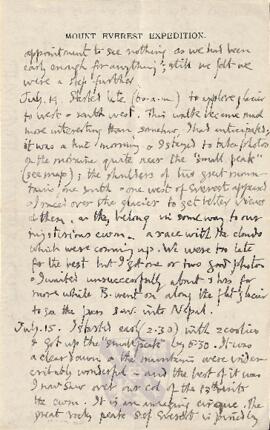 MOUNT EVEREST EXPEDITION.
appointment to see nothing as we had been
early enough for anything; still we felt we
were a step further.
July 14. Started late (6.0 a.m.) to explore glacier
to west & south west. This walk became much
more interesting than somehow I had anticipated;
it was a fine morning & I stayed to take photos
on the moraine quite near the "small peak"
(see map); the shoulders of two great moun-
tains one south & one west of Everest appeared
& I raced over the glacier to get better views
of them, as they belong in some way to our
mysterious cwm - a race with the clouds
which were coming up. We were too late
for the best but I got one or two good photos
& waited unsuccessfully about 2 hrs for
more while B. went on along the flat glacier
to the pass & saw into Nepal.
July. 15. I started early (2.30) with 2 coolies
& got up the "small peak" by 5.30. It was
a clear dawn & the mountains were inder-
cribably wonderful - and the best of it was
I now saw over our col of the 13th into
the cwm. It is an amazing cirque. The
great rocky peak S. of Everest is joined by